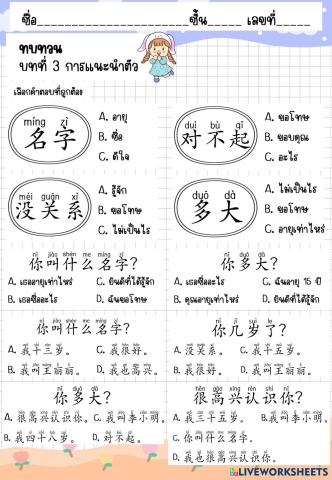 ชื่อ ชั้น เลขที่
ทบทวน
บทที่ 3 การแนะนำตัว
เลือกคำตอบที่ถูกต้อง
míng zì
名字
A. อายุ
B. ชื่อ
C. ดีใจ
duì bù qǐ
对不起
A. ขอโทษ
B. ขอบคุณ
C. อะไร
méi guān xi
没关系
A. รู้จัก
B. ขอโทษ
C. ไม่เป็นไร
duō dà
多大
A. ไม่เป็นไร
B. ขอโทษ
C. อายุเท่าไหร่
nǐ jiào shén me míng zì
你叫什么名字?
A. เธออายุเท่าไหร่ C. ยินดีที่ได้รู้จัก
B. เธอชื่ออะไร D. ฉันขอโทษ
nǐ duō dà
你多大?
A. เธอชื่ออะไร C. ฉันอายุ 15 ปี
B. คุณอายุเท่าไหร่ D. ยินดีที่ได้รู้จัก
nǐ jiào shén me míng zì
你叫什么名字?
A. 我十三岁。 C. 我很好。
B. 我叫王丽丽。 D. 我也高兴。
nǐ jǐ suì le
你几岁了?
A. 没关系。 C. 我十五岁。
B. 我很好。 D. 我叫王丽丽。
nǐ duō dà
你多大?
A. 很高兴认识你。 C. 我叫李小明。
B. 我四十八岁。 D. 对不起。
hěn gāo xìng rèn shi nǐ
很高兴认识你?
A. 我三十五岁。 B. 我叫李小明。
C. 你叫什么名字。
D. 我也很高兴认识你。
LIVEWORKSHEETS